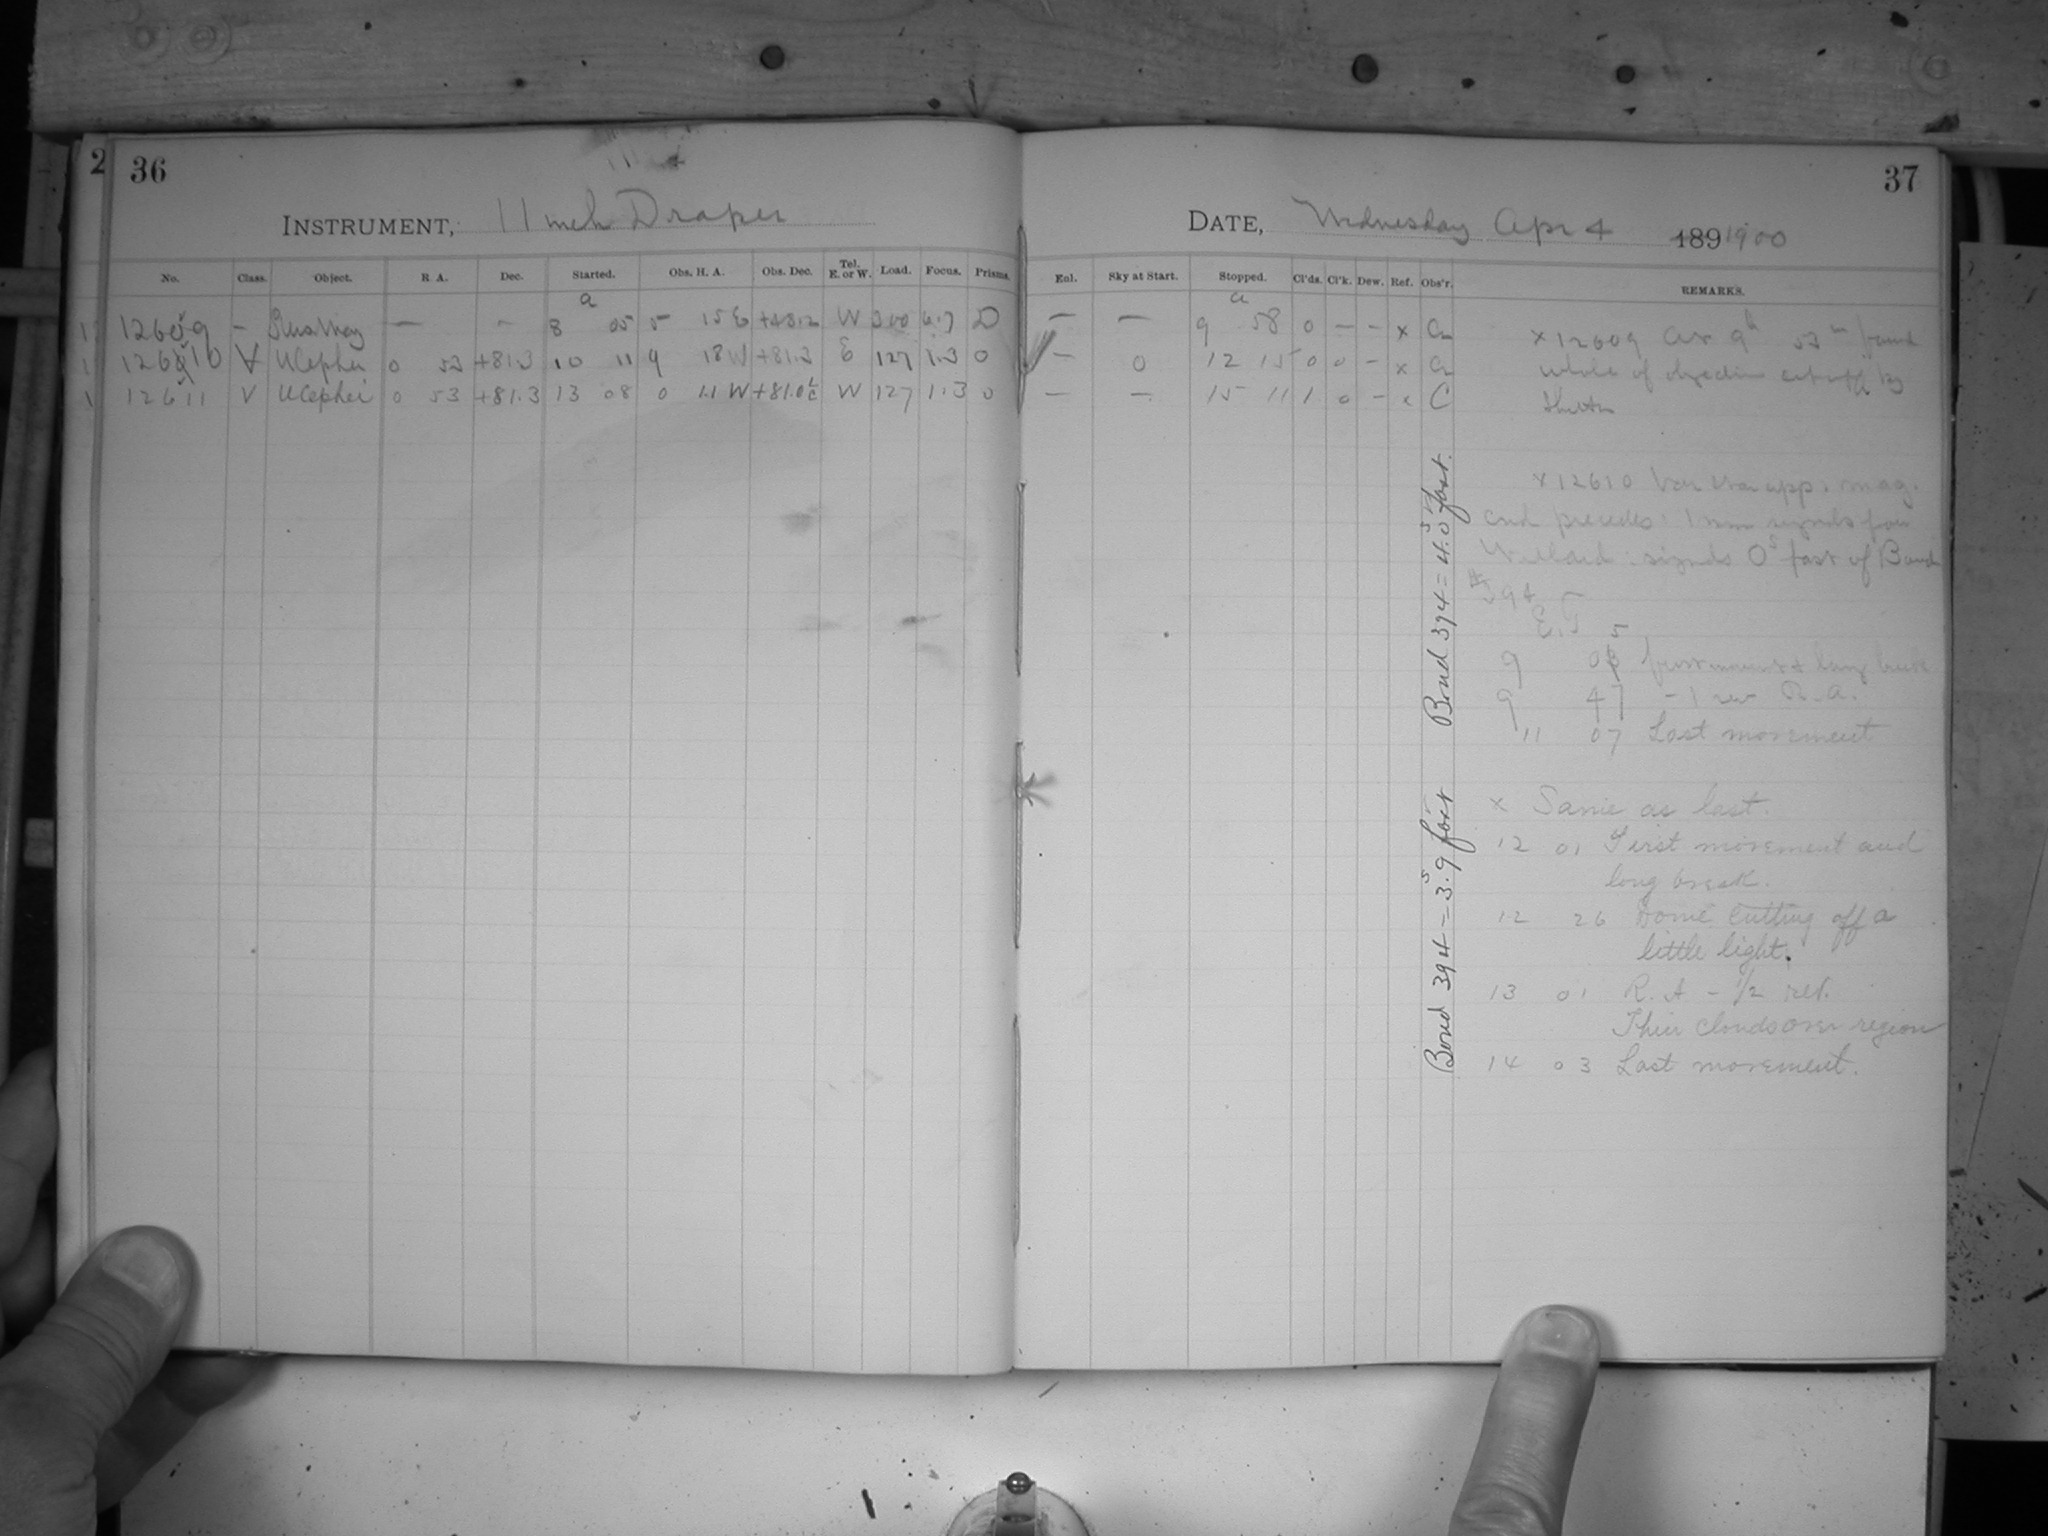 2 36
INSTRUMENT, 11 inch Draper
No. Class. Object. R A. Dec. Started. Obs. H. A. Obs. Dec. Tel. E. or W. Load. Focus. Prisms.
a
12609 — — - 8 05 5 15 E +48.2 W 300 6.7 D
12610 V UCephei 0 53 +81.3 10 11 9 18 W +81.3 E 127 1.3 0
12611 V UCephei 0 53 +81.3 13 08 0 11 W +81.0 W 127 1.3 0
37
DATE, Wednesday Apr 4 189 1900
Eol. Sky at Start. Stopped. Cl'ds. Cl'k. Dew. Ref. Obs'r. REMARKS.
a
— — 9 58 0 — — x
— 0 12 15 0 0 — x
— — 15 11 1 0 — x C
x 12609 At 9h 53m found
whole of objective cut off by
shutter
x 12610 Var app. mag.
and precedes 1 mm signals from
Willard signals 0s fast of Bond
#394
E. T
9 05 first movement & long break
9 47 - 1 rev R. A.
11 07 Last movement
x Same as last.
12 01 First movement and
long break.
12 26 Dome cutting off a
little light.
13 01 R. A - 1/2 rev.
Thin clouds over region
14 03 Last movement.
Bond 394 = 4.0s fast.
Bond 394 = 3.9s fast